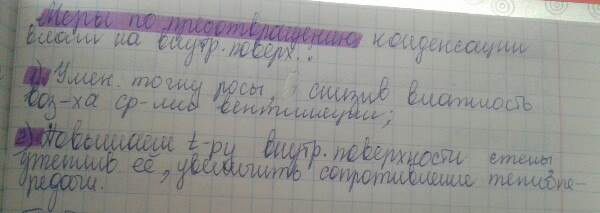 Меры по предотвращению конденсации
влаги на внутр. поверх..
1) Умен. точку росы, снизив влажность
воз-ха ср-ми вентиляции;
2) Повышаем t-ру внутр. поверхности стены
утеплив её, увеличить сопротивление теплопе-
редачи.